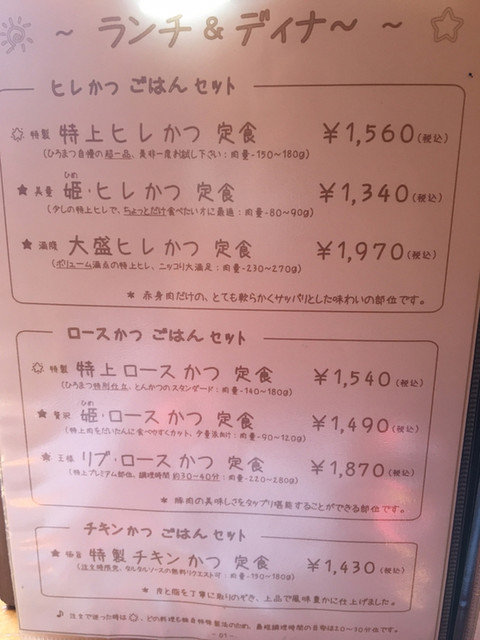 ～ ランチ & ディナ～ ～
ヒレかつ ごはん セット
特製 特上ヒレかつ 定食 ￥1,560(税込)
(ひろまつ自慢の極一品、是非一度お試し下さい：肉量-150～180g)
ひめ
姫・ヒレかつ 定食 ￥1,340(税込)
(少しの特上ヒレで、ちょっとだけ食べたい方に最適：肉量-80～90g)
満腹 大盛ヒレかつ 定食 ￥1,970(税込)
(ボリューム満点の特上ヒレ、ニッコリ大満足：肉量-230～270g)
* 赤身肉だけの、とても軟らかくサッパリとした味わいの部位です。
ロースかつ ごはん セット
特製 特上ロースかつ 定食 ￥1,540(税込)
(ひろまつ特別仕立、とんかつのスタンダード：肉量-140～180g)
ひめ
贅沢 姫・ロースかつ 定食 ￥1,490(税込)
(特上肉をだいたんに食べやすくカット、少量派向け：肉量-90～120g)
王様 リブ・ロースかつ 定食 ￥1,870(税込)
(特上プレミアム部位、調理時間 約30～40分：肉量-220～280g)
* 豚肉の美味しさをタップリ堪能することができる部位です。
チキンかつ ごはん セット
特製チキンかつ 定食 ￥1,430(税込)
(注文時限定、タルタルソースの無料リクエスト可：肉量-150～180g)
* 皮と脂を丁寧に取りのぞき、上品で風味豊かに仕上げました。
♪ 注文で迷った時は、どの料理も独自特殊製法のため、最短調理時間の目安は20～30分位です。
-01-